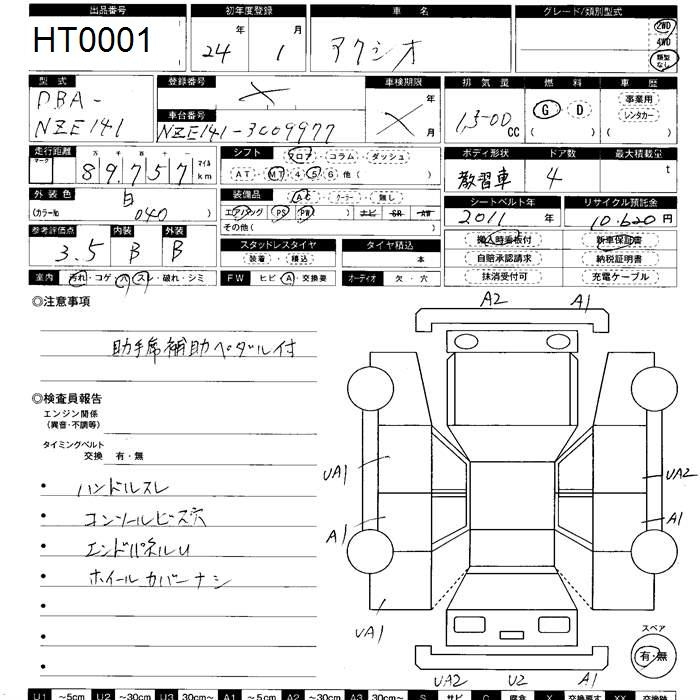 出品番号 初年度登録 車名 グレード/類別型式
HT0001 24年 1月 アクシオ 2WD 4WD 類型なし
型式 登録番号 車検期限 排気量 燃料 車歴
DBA-NZE141 × ×年月 1,500cc G D ( ) 事業用 レンタカー ( )
車台番号
NZE141-3009977
走行距離 シフト ボディ形状 ドア数 最大積載量
マーク 十万千百十一
89,757 マイル km フロア・コラム・ダッシュ 教習車 4 t
AT・MT 4・5・6 他( )
外装色 装備品 シートベルト年 リサイクル預託金
白 AC・クーラー・無し 2011年 10,620円
(カラーNo 040 ) エアバッグ PS PW ナビ SR AW
その他( )
参考評価点 内装 外装 スタッドレスタイヤ タイヤ積込 搬入時看板付 新車保証書
3.5 B B 装着・積込 本 自賠承認請求 納税証明書
室内 汚れ・コゲ・穴・スレ・破れ・シミ FW ヒビ・A・交換要 オーディオ 欠・穴 抹消受付可 充電ケーブル
◎注意事項
助手席補助ペダル付
◎検査員報告
エンジン関係
(異音・不調等)
タイミングベルト
交換 有・無
・ハンドルスレ
・コンソールビス穴
・エンドパネルU
・ホイールカバーナシ
A2 A1
UA1 UA2
A1 A1
UA1
スペア
有・無
UA2 U2 A1
U1 ~5cm U2 ~30cm U3 30cm~ A1 ~5cm A2 ~30cm A3 30cm~ S サビ C 腐食 X 交換要 XX 交換跡